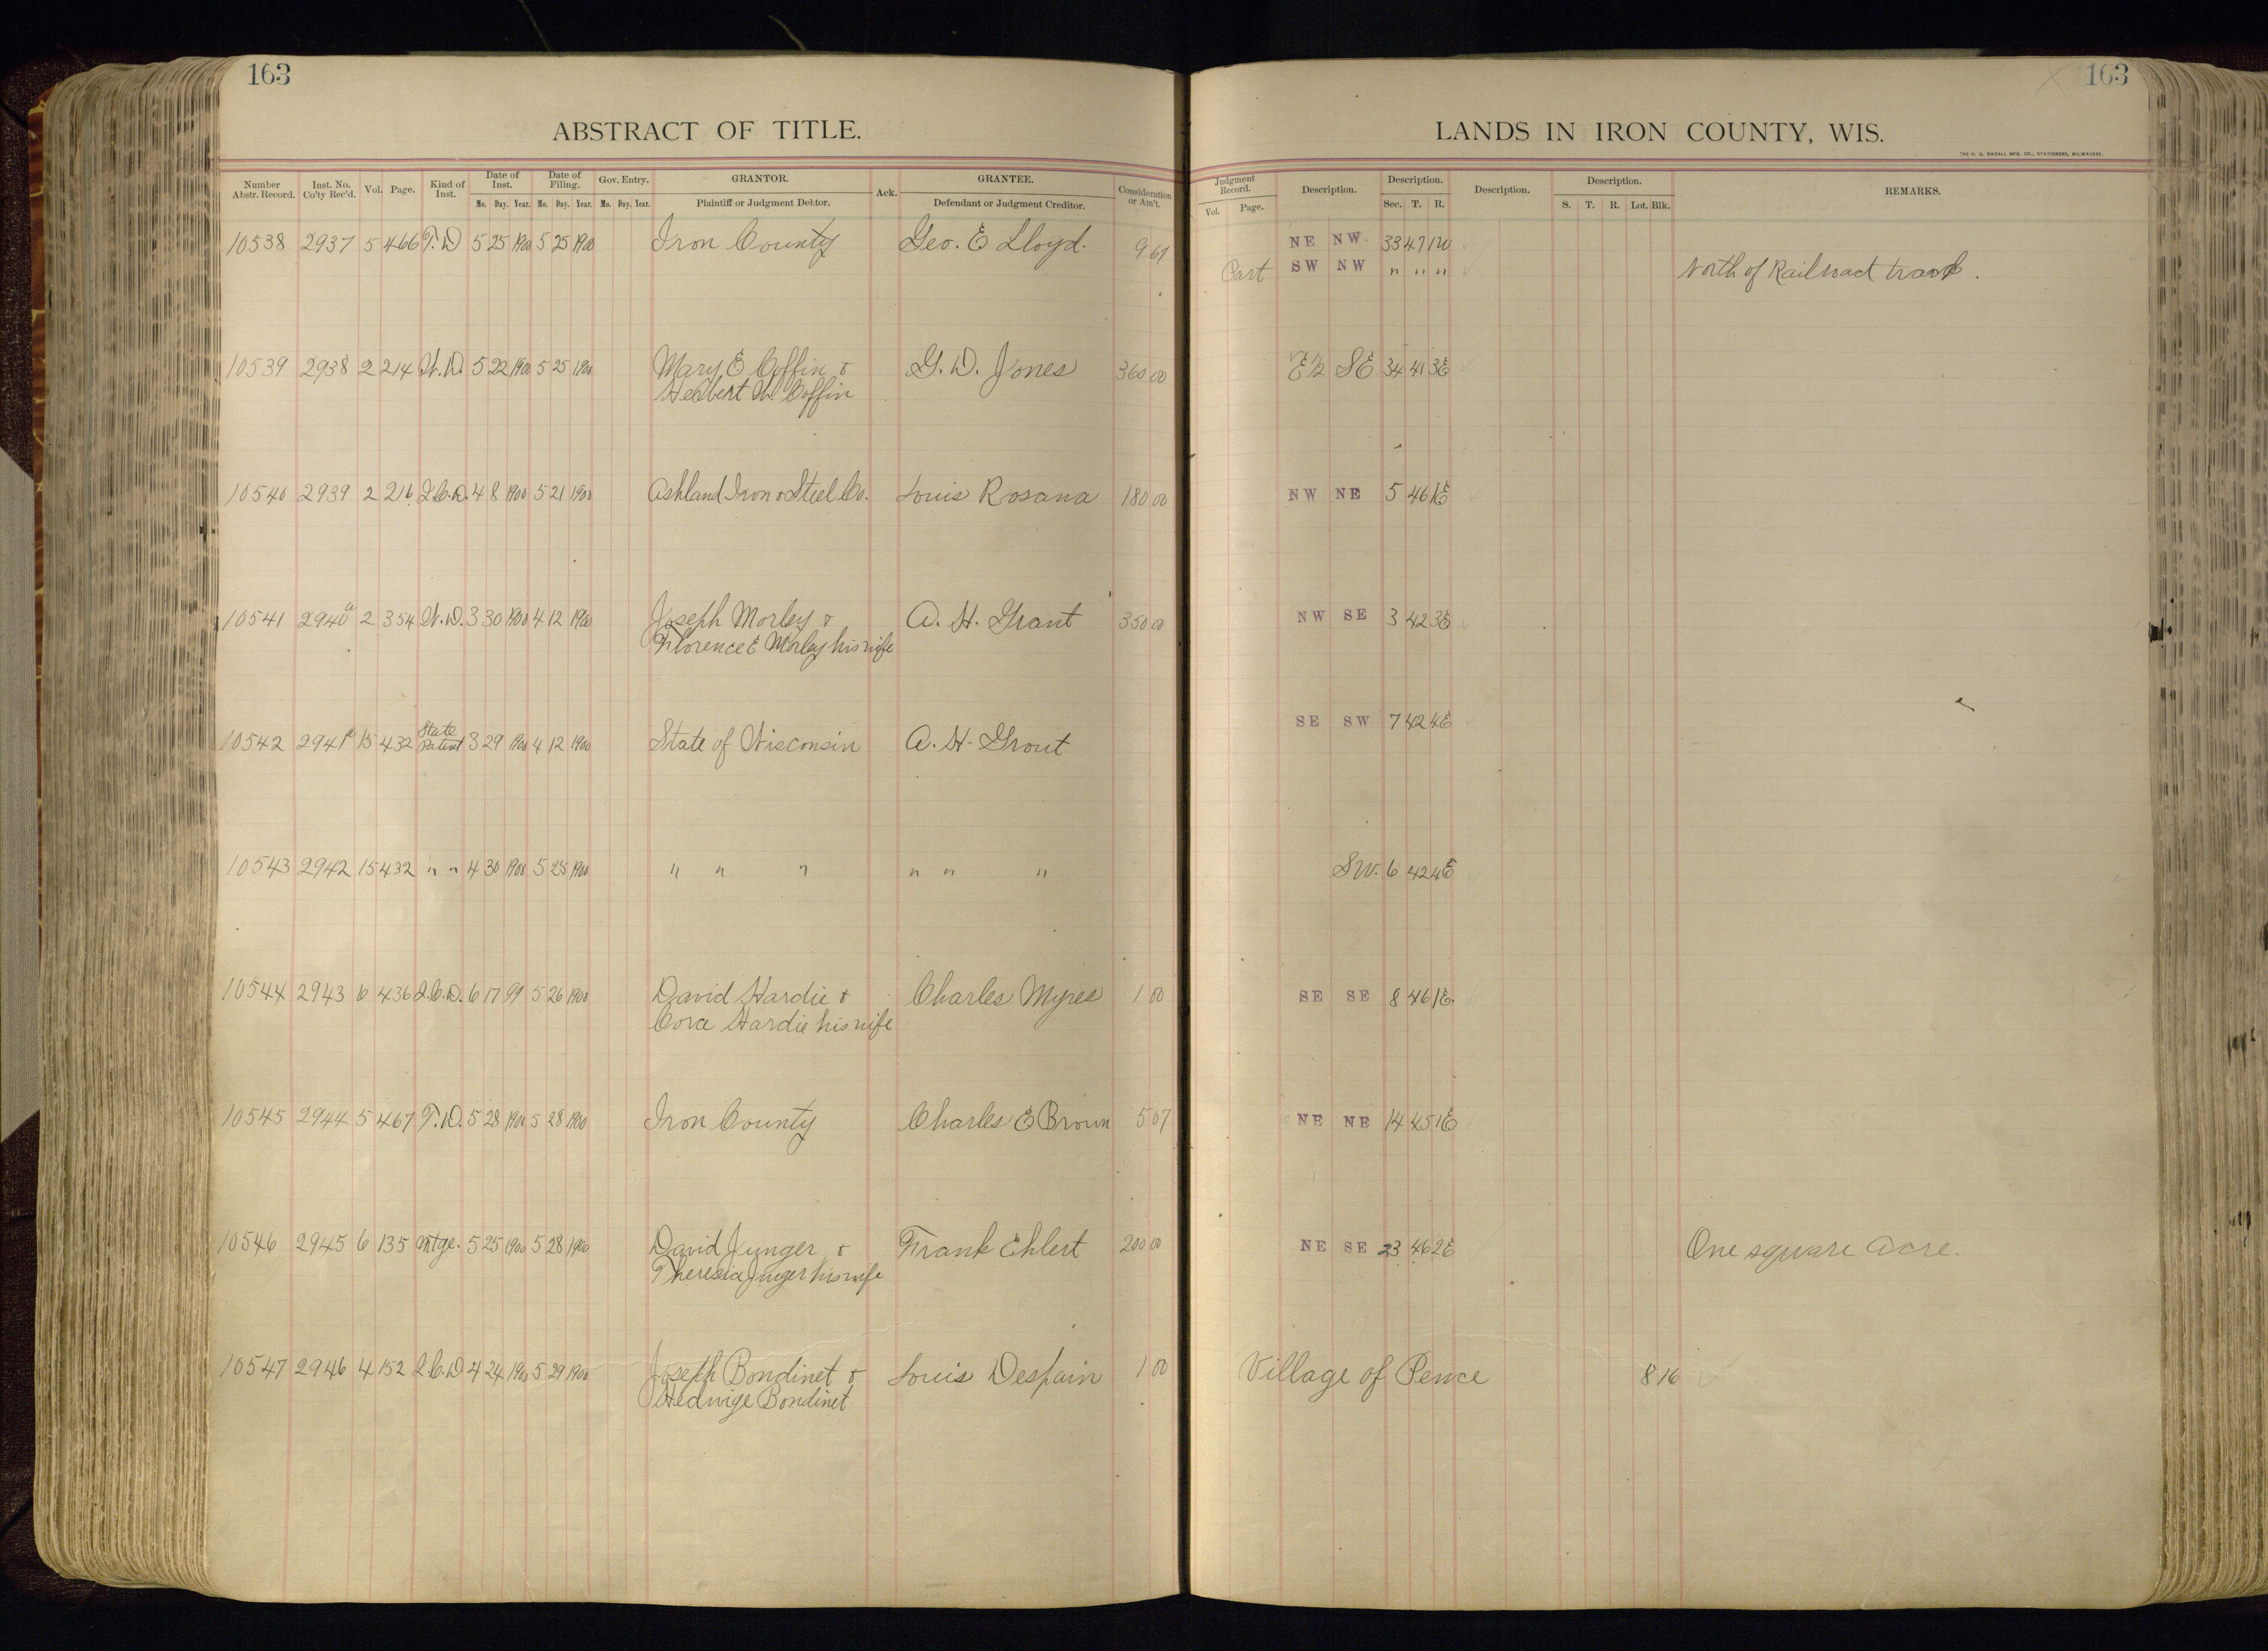 163
163
ABSTRACT OF TITLE.
LANDS IN IRON COUNTY, WIS.
THE H. G. RAZALL MFG. CO., STATIONERS, MILWAUKEE.
Number Abstr. Record. Inst. No. Co'ty Rec'd. Vol. Page. Kind of Inst. Date of Inst. Mo. Day. Year. Date of Filing. Mo. Day. Year. Gov. Entry. Mo. Day. Year. GRANTOR. Plaintiff or Judgment Debtor. Ack. GRANTEE. Defendant or Judgment Creditor. Consideration or Am't. Judgment Record. Vol. Page. Description. Description. Sec. T. R. Description. Description. S. T. R. Lot. Blk. REMARKS.
10538 2937 5 466 T. D 5 25 1900 5 25 1900 Iron County Geo. E Lloyd. 9 61 NE NW 33 47 1W
Part SW NW " " " North of Railroad track.
10539 2938 2 214 W. D. 5 22 1900 5 25 1900 Mary E Coffin & G. W. Jones 360 00 E½ SE 34 41 3E
Herbert W. Coffin
10540 2939 2 216 Q.C.D. 4 8 1900 5 21 1900 Ashland Iron & Steel Co. Louis Rosana 180 00 NW NE 5 46 1E
10541 2940a 2 354 W. D. 3 30 1900 4 12 1900 Joseph Morley & A. H. Grant 350 00 NW SE 3 42 3E
Florence E Morley his wife
10542 2941a 15 432 State Patent 3 29 1900 4 12 1900 State of Wisconsin A. H. Grout SE SW 7 42 4E
10543 2942 15 432 " " 4 30 1900 5 25 1900 " " " " " " SW. 6 42 4E
10544 2943 6 436 Q.C.D. 6 17 99 5 26 1900 David Hardie & Charles Myres 1 00 SE SE 8 46 1E.
Cora Hardie his wife
10545 2944 5 467 T. D. 5 28 1900 5 28 1900 Iron County Charles E Brown 5 07 NE NE 14 45 1E
10546 2945 6 135 Mtge. 5 25 1900 5 28 1900 David Junger & Frank Ehlert 200 00 NE SE 23 46 2E One square acre.
Theresia Junger his wife
10547 2946 4 152 Q.C.D 4 24 1900 5 29 1900 Joseph Bondinet & Louis Despain 1 00 Village of Pence 8 16
Hedwige Bondinet